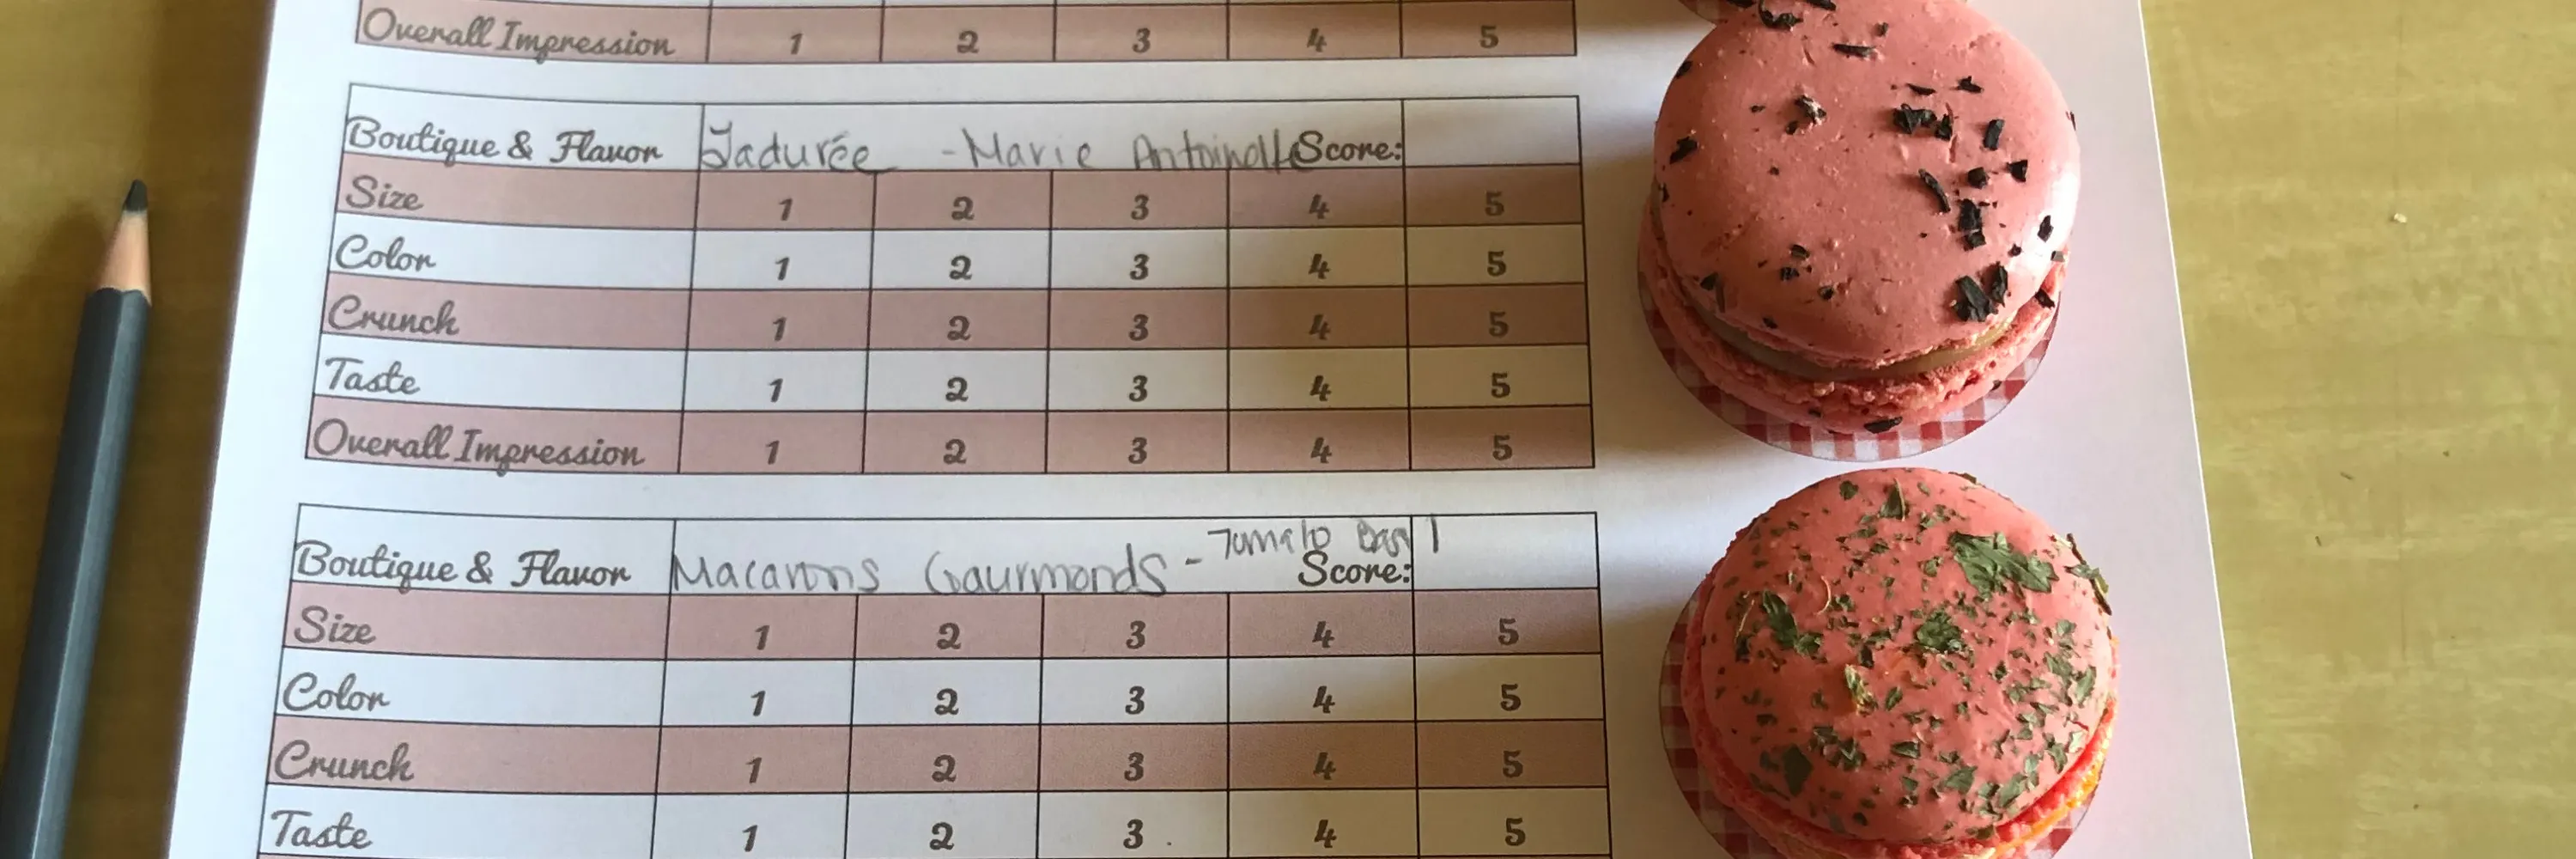 Overall Impression 1 2 3 4 5
Boutique & Flavor Ladurée - Marie Antoinette Score:
Size 1 2 3 4 5
Color 1 2 3 4 5
Crunch 1 2 3 4 5
Taste 1 2 3 4 5
Overall Impression 1 2 3 4 5
Boutique & Flavor Macarons Gaurmonds - Tomato Basil Score:
Size 1 2 3 4 5
Color 1 2 3 4 5
Crunch 1 2 3 4 5
Taste 1 2 3 4 5